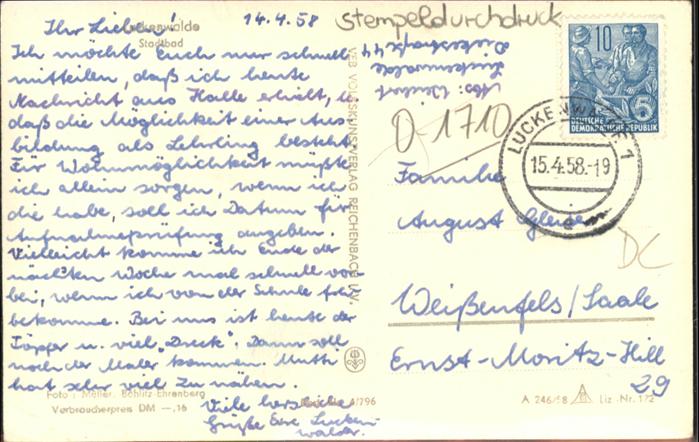 Ihr Lieben! 14.4.58
Luckenwalde
Stadtbad
Ich möchte Euch nur schnell
mitteilen, daß ich heute
Nachricht aus Halle erhielt,
daß die Möglichkeit einer Aus
bildung als Lehrling besteht.
Für Wohnmöglichkeit müßte
ich allein sorgen, wenn ich
die habe, soll ich Datum für
Aufnahmeprüfung angeben.
Vielleicht komme ich Ende der
nächsten Woche mal schnell vor
bei, wenn ich von der Schule frei
bekomme. Bei uns ist heute der
Töpfer u. viel „Dreck". Dann soll
noch der Maler kommen. Mutti
hat sehr viel zu nähen.
Viele herzliche
Grüße Eure Lucken-
walder.
Foto: Müller, Böhlitz-Ehrenberg
Verbraucherpreis DM —,16
4/796
VEB VOLKSKUNSTVERLAG REICHENBACH I. V.
Stempeldurchdruck
Abs:
Luckenwalde
44
O-1710
10
5
DEUTSCHE
DEMOKRATISCHE REPUBLIK
LUCKENWALDE 1
15.4.58.-19
Familie
August
DC
Weißenfels/Saale
Ernst-Moritz-Hill
29
A 246/58 Liz.-Nr. 172